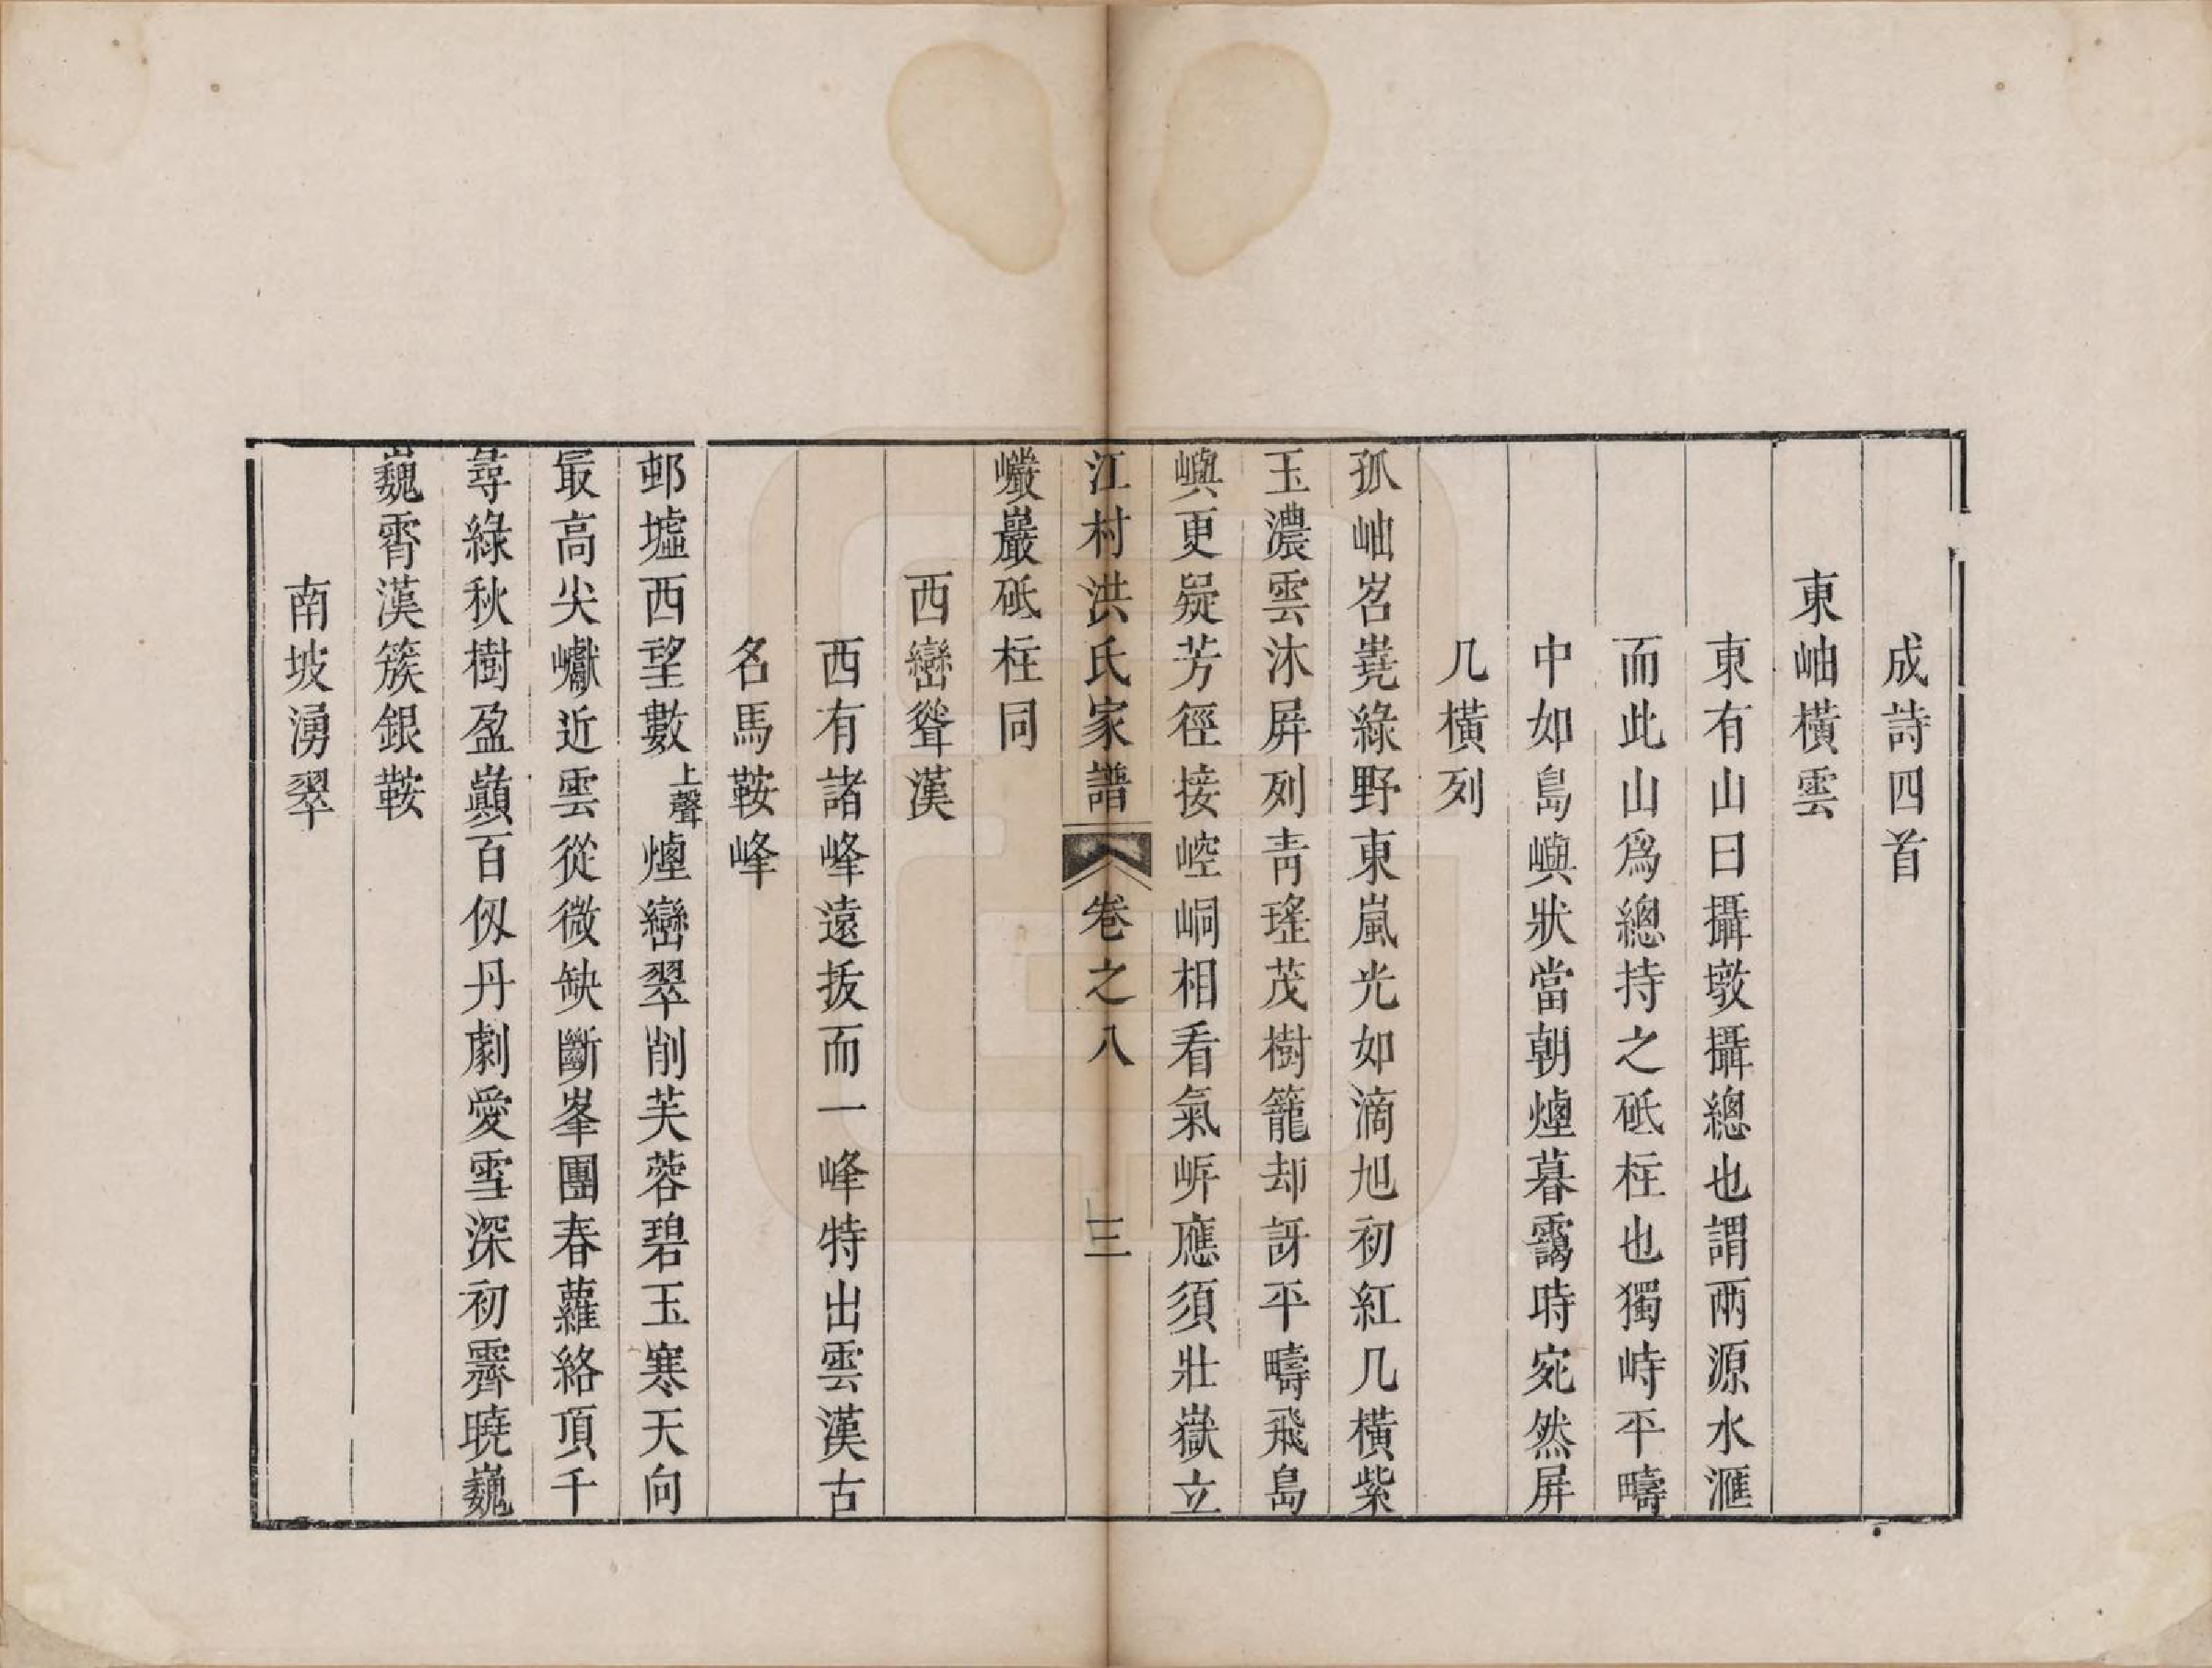 成詩四首
東岫橫雲
東有山曰攝墩攝總也謂兩源水滙
而此山爲總持之砥柱也獨峙平疇
中如島嶼狀當朝煙暮靄時宛然屏
几橫列
孤岫岧嶤綠野東嵐光如滴旭初紅几橫紫
玉濃雲沐屏列青瑤茂樹籠却訝平疇飛島
嶼更疑芳徑接崆峒相看氣㟁應須壯嶽立
巖巖砥柱同
江村洪氏家譜 卷之八 三
西巒聳漢
西有諸峰遠拔而一峰特出雲漢古
名馬鞍峰
邨墟西望數上聲煙巒翠削芙蓉碧玉寒天向
最高尖巘近雲從微缺斷峯團春蘿絡頂千
尋綠秋樹盈巔百仭丹劇愛雪深初霽曉巍
巍霄漢簇銀鞍
南坡湧翠